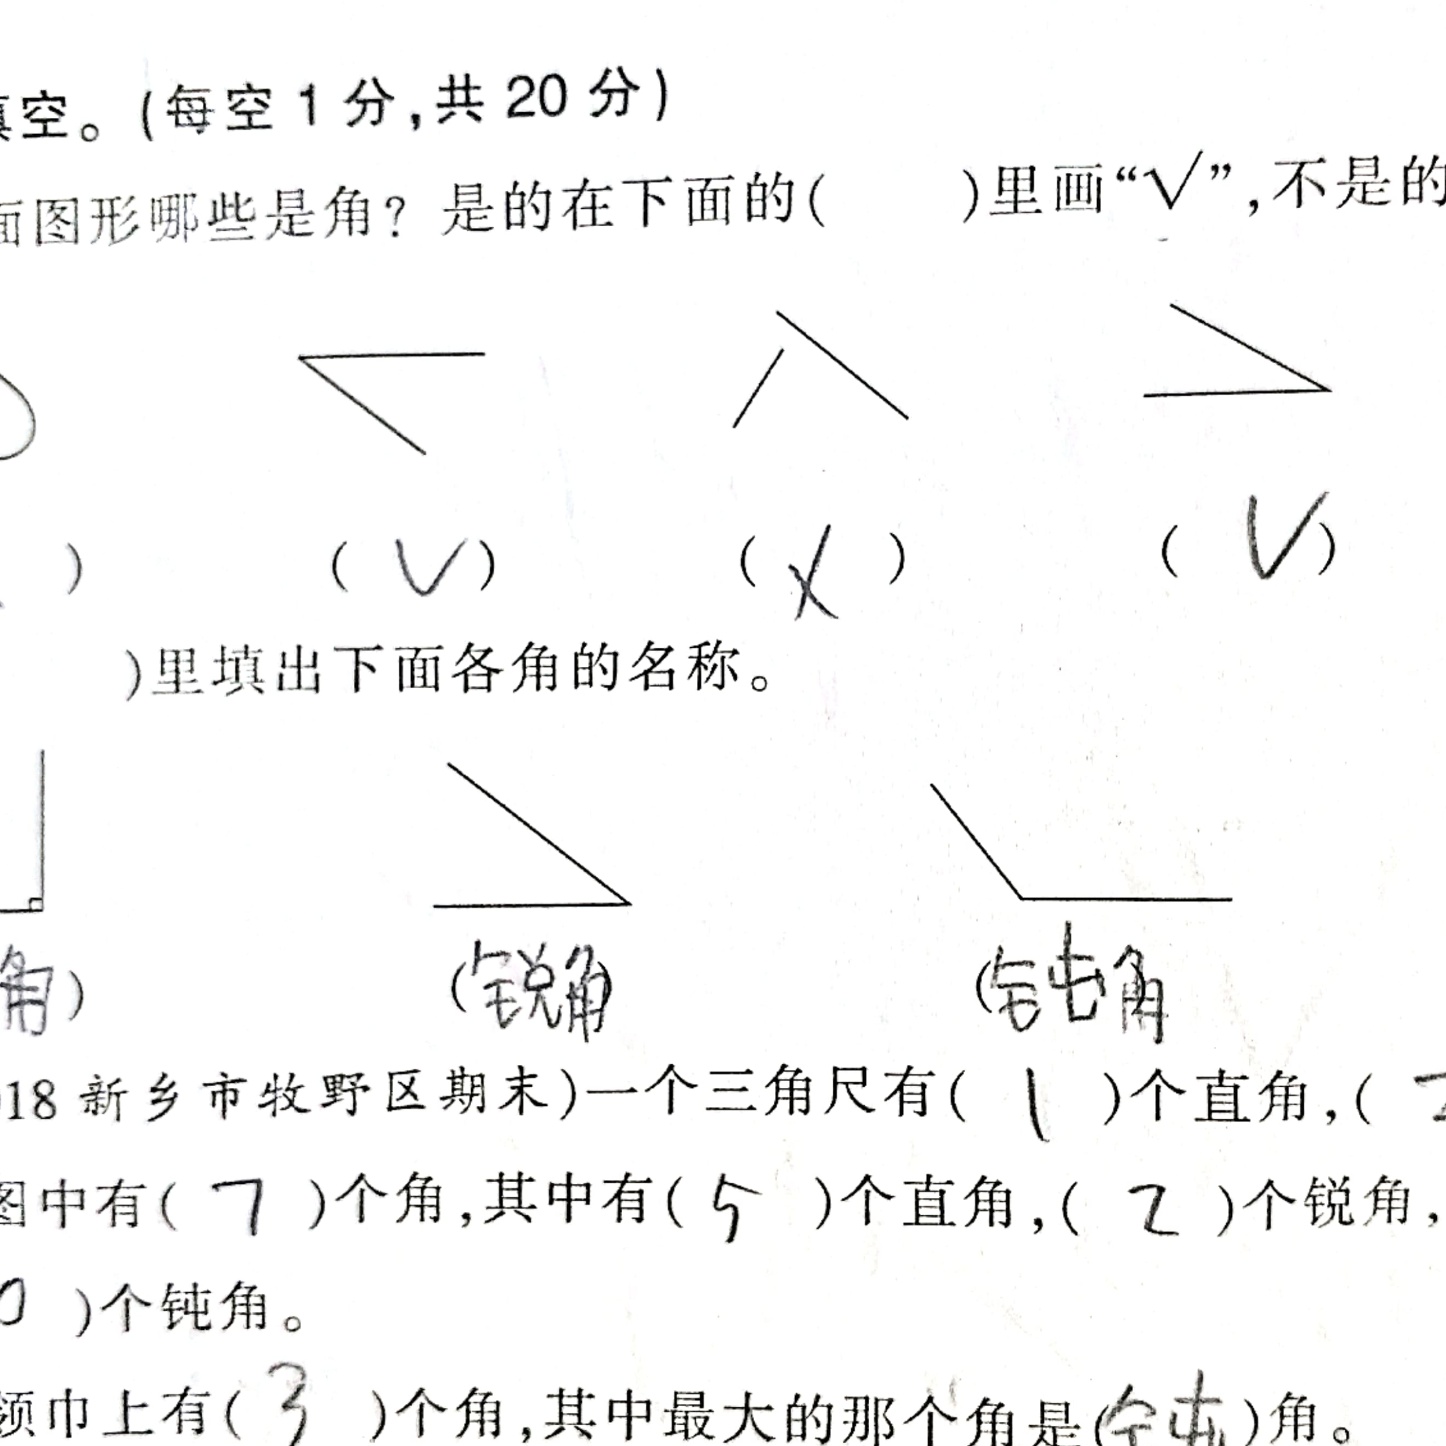 空。(每空 1 分,共 20 分)
面图形哪些是角?是的在下面的( )里画“√”,不是的
) ( √ ) ( × ) ( √ )
)里填出下面各角的名称。
角) (锐角) (钝角
18 新乡市牧野区期末)一个三角尺有( 1 )个直角,( 2
图中有( 7 )个角,其中有( 5 )个直角,( 2 )个锐角,
0 )个钝角。
领巾上有( 3 )个角,其中最大的那个角是(钝)角。